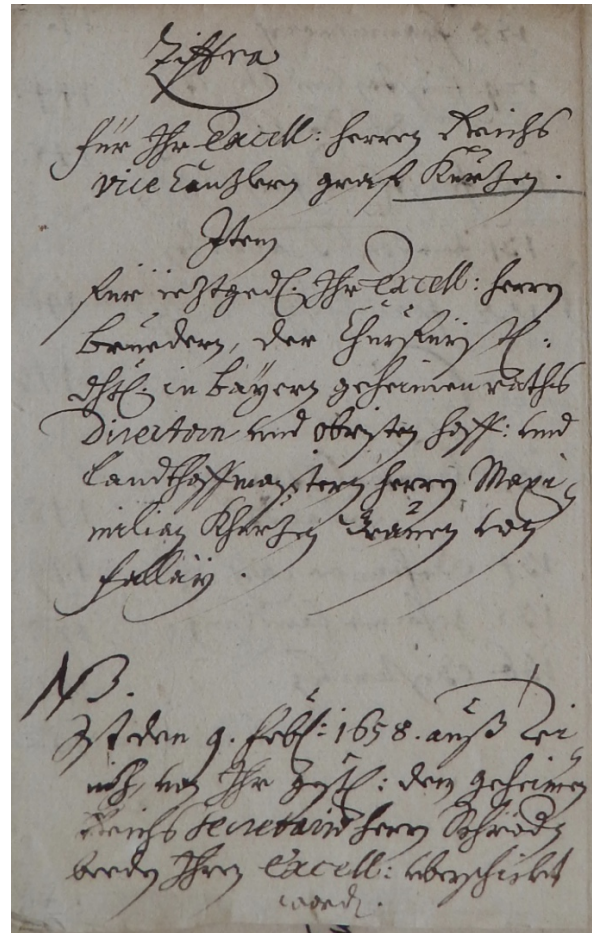 Ziffra
für Ihr Excell: herren Reichs
vice Canzlern graf Kurzen.
Item
für ieztged: Ihr Excell: herrn
bruedern, der Churfürstl:
dhtl: in bayern geheimen raths
Directorn und obristen hoff: und
landthoffmaistern herrn Maxi-
milian Khurzen Graven von
Vallay.
NB.
Ist den 9. Feb: 1658. auß
von Ihr gstl: dem geheimen
Reichs Secretario herrn Schröder
beeden Ihren Excell: überschickt
word.